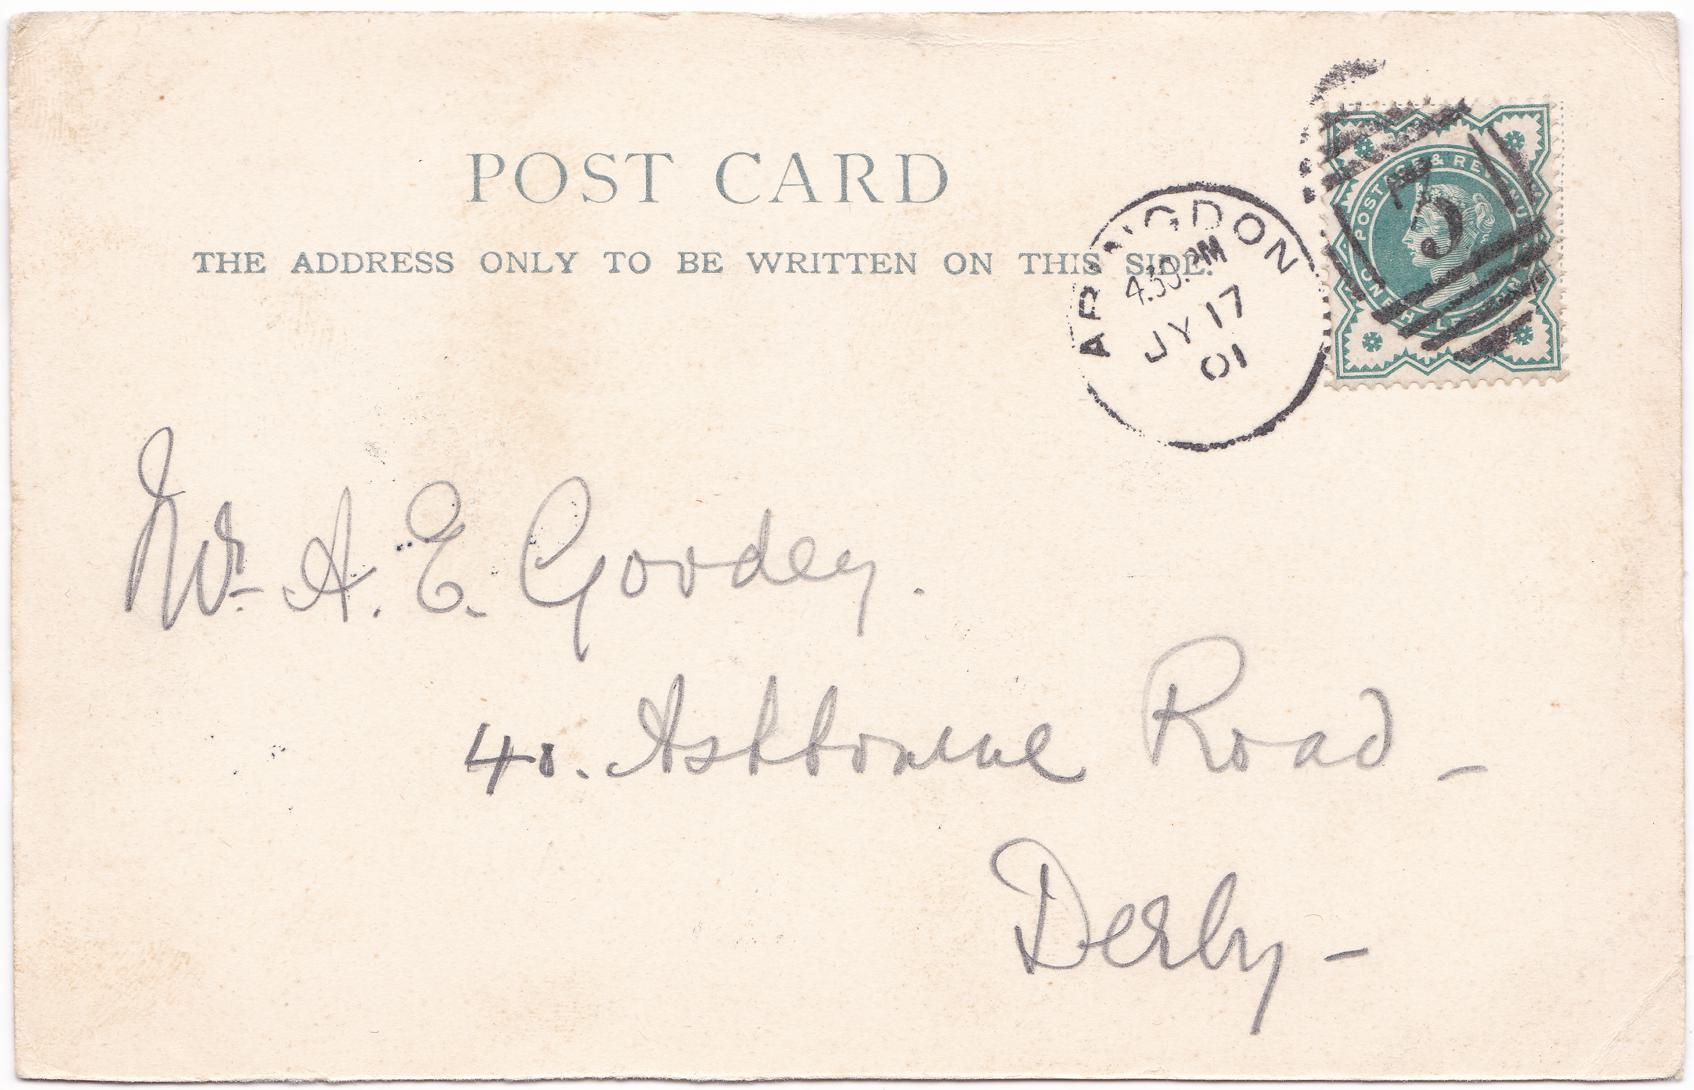 POST CARD
THE ADDRESS ONLY TO BE WRITTEN ON THIS SIDE.
ABINGDON
4.30.PM
JY 17
01
POSTAGE & REVENUE
ONE HALFPENNY
Mr. A. E. Goodey.
40. Ashbourne Road –
Derby –